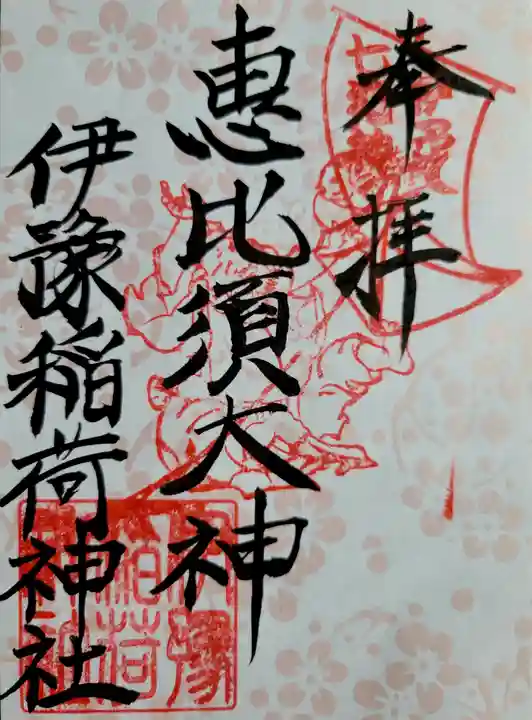 奉拝
惠比須大神
伊豫稲荷神社